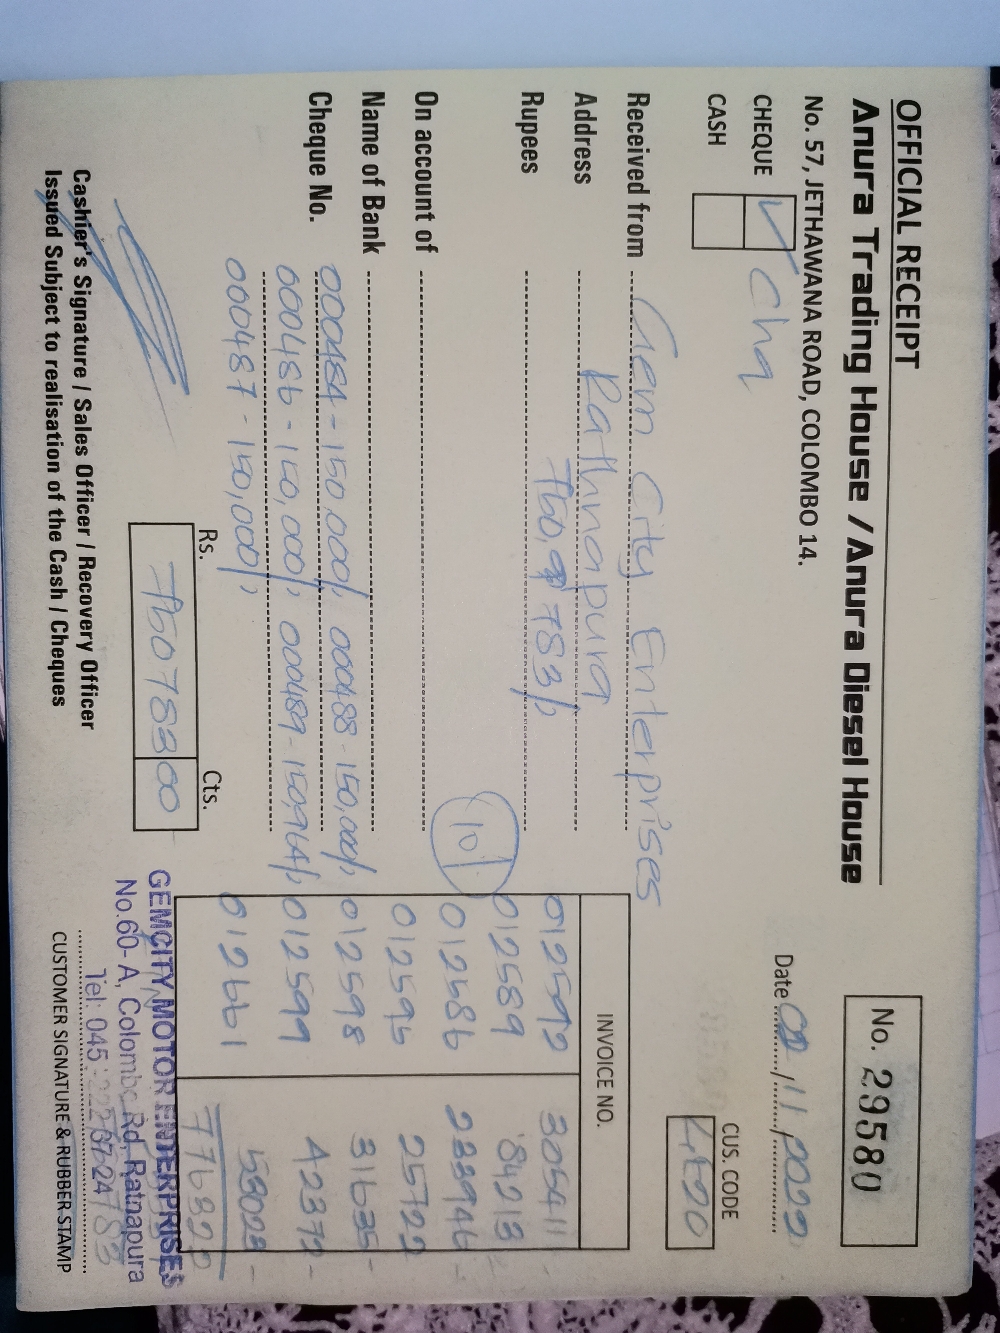 OFFICIAL RECEIPT
Anura Trading House / Anura Diesel House
No. 57, JETHAWANA ROAD, COLOMBO 14.
No. 29580
CHEQUE ✓ Cha
CASH
Date 02/11/2022
CUS. CODE
Received from Gem City Enterprises
Address Rathnapura
Rupees 760,783/,
On account of
10
Name of Bank
Cheque No. 000484-150,000/, 000488-150,000/,
000486-150,000/, 000489-150,964/,
000487-150,000/,
INVOICE NO.
012592 305411-
012589 84213-
012586 233946-
012595 25722
012598 31635-
012599 42372-
012661 53023-
776322
Rs. Cts.
760783 00
GEMCITY MOTOR ENTERPRISES
No.60-A, Colombo Rd, Ratnapura
Tel: 045
Cashier's Signature / Sales Officer / Recovery Officer
Issued Subject to realisation of the Cash / Cheques
CUSTOMER SIGNATURE & RUBBER STAMP